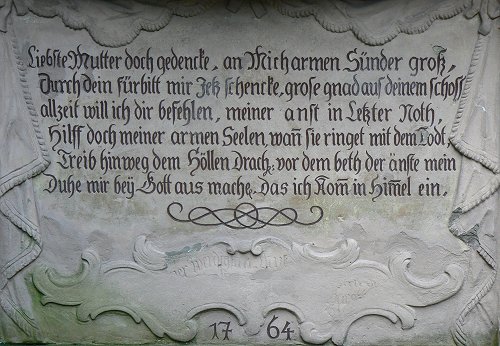 Liebste Mutter doch gedencke, an Mich armen Sünder groß,
Durch dein fürbitt mir Jetz schencke, grose gnad aus deinem schoss
allzeit will ich dir befehlen, meiner anst in Letzter Noth,
Hilff doch meiner armen Seelen, wan̄ sie ringet mit dem Todt,
Treib hinweg dem Höllen Drach, vor dem beth der änste mein
Duhe mir beÿ Gott aus mache, Das ich Kom̄ in Him̄el ein.
1764